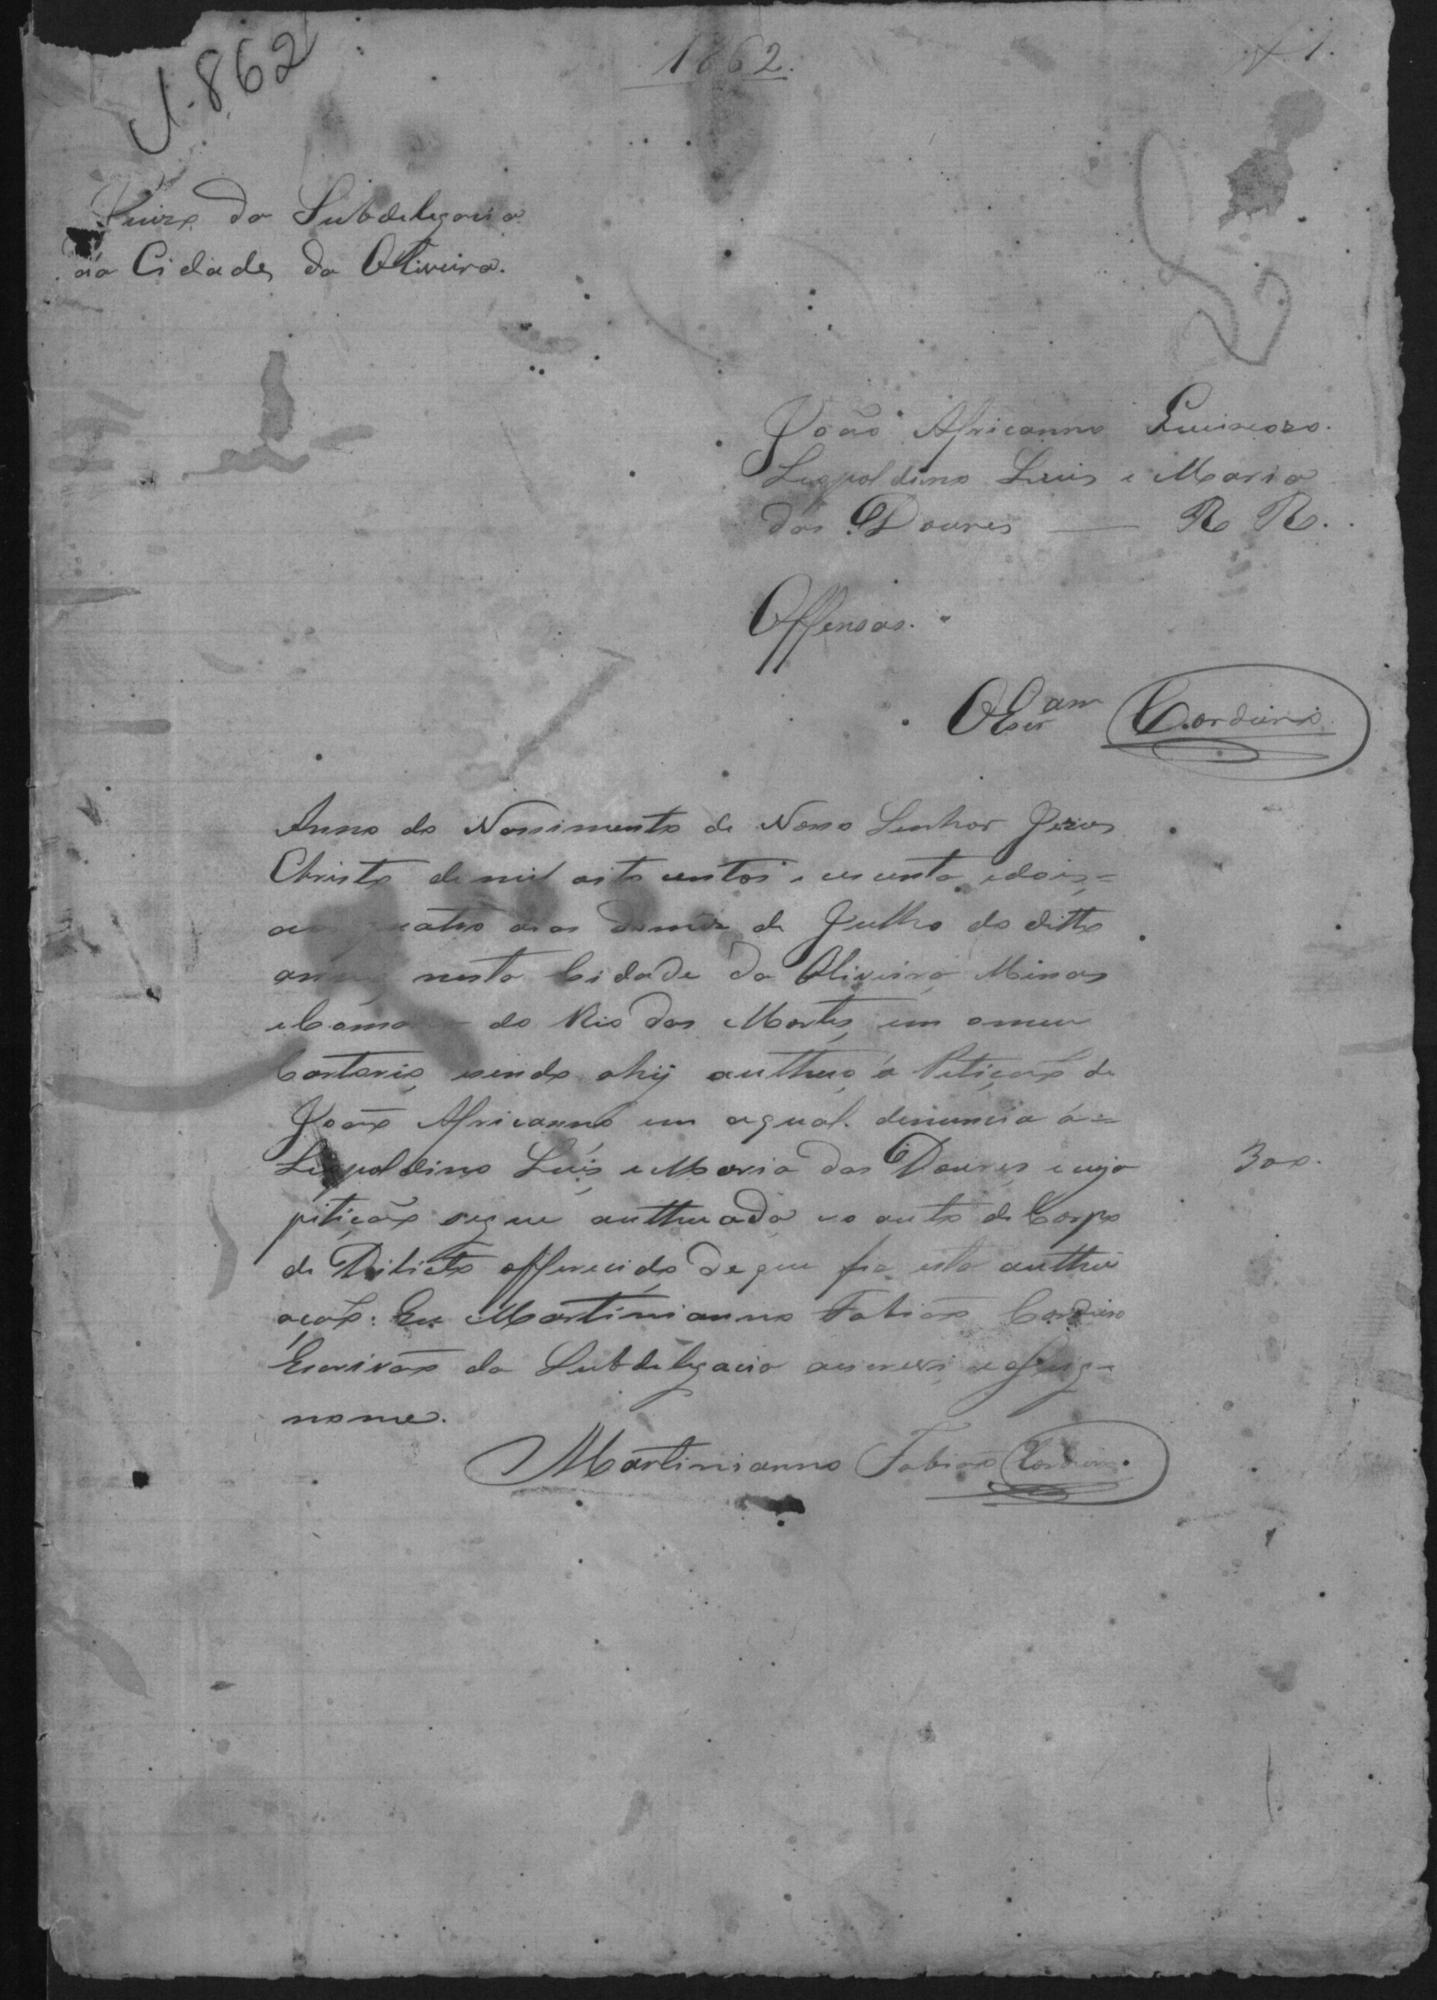 1.862
1862.
1.
Juizo da Subdelegacia
da Cidade da Oliveira.
João Africanno Queixozo.
Leopoldino Luis e Maria
das Doures — R R.
Offensas.
O Escr.am Cordeiro
Anno do Nassimento de Nosso Senhor Jezus
Christo de mil oito centos e cecenta e dois =
aos quatro dias do mez de Julho do ditto
anno nesta Cidade da Oliveira Minas
e Comarca do Rio das Mortes, em o meu
Cartorio, sendo ahij authuo a Petição de
João Africanno em a qual denuncia á =
Leopoldino Luis e Maria das Doures e cuja
300.
pitição segue authuada e o auto de Corpo
de Dilicto offerecido de que fis esta authu
ação. Eu Martinianno Fabião Cordeiro
Escrivão da Subdelegacia escrevi e assig=
nome.
Martinianno Fabião Cordeiro.